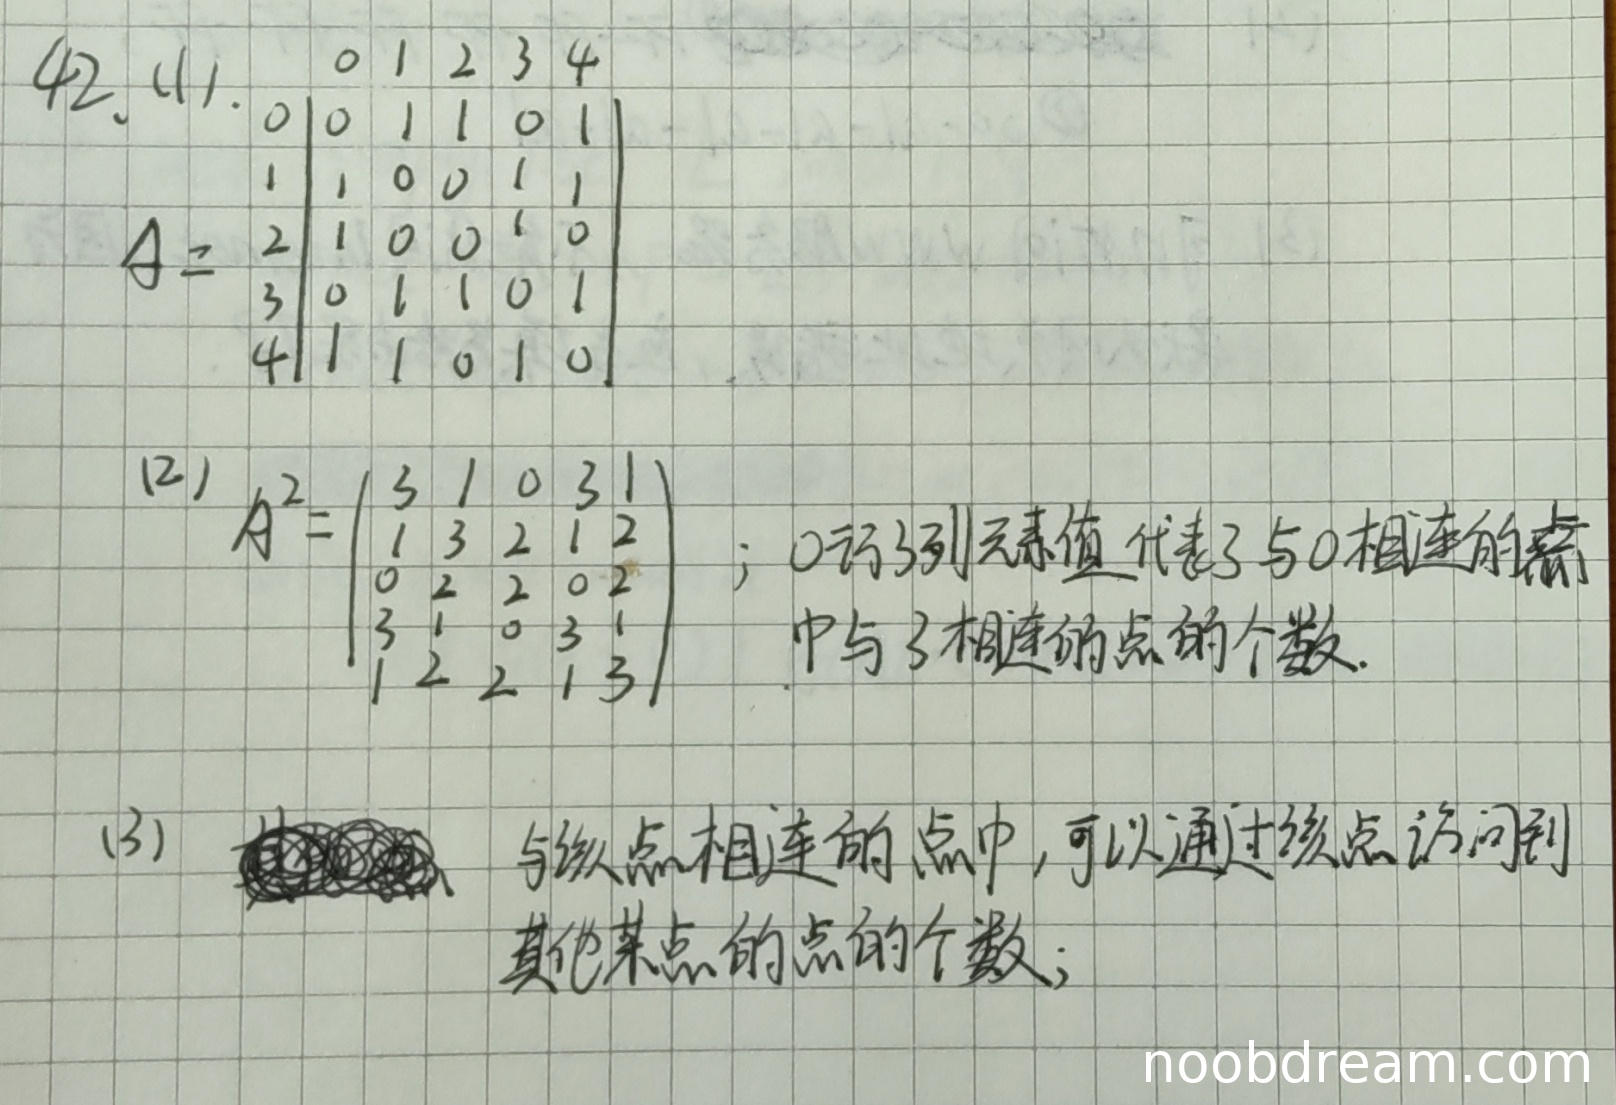 42、(1).
0 1 2 3 4
0 0 1 1 0 1
1 1 0 0 1 1
A = 2 1 0 0 1 0
3 0 1 1 0 1
4 1 1 0 1 0
(2) A²= 3 1 0 3 1
1 3 2 1 2 ; 0行3列元素值代表了与0相连的点
0 2 2 0 2
3 1 0 3 1 中与3相连的点的个数.
1 2 2 1 3
(3) 与该点相连的点中,可以通过该点访问到
其他某点的点的个数;
noobdream.com